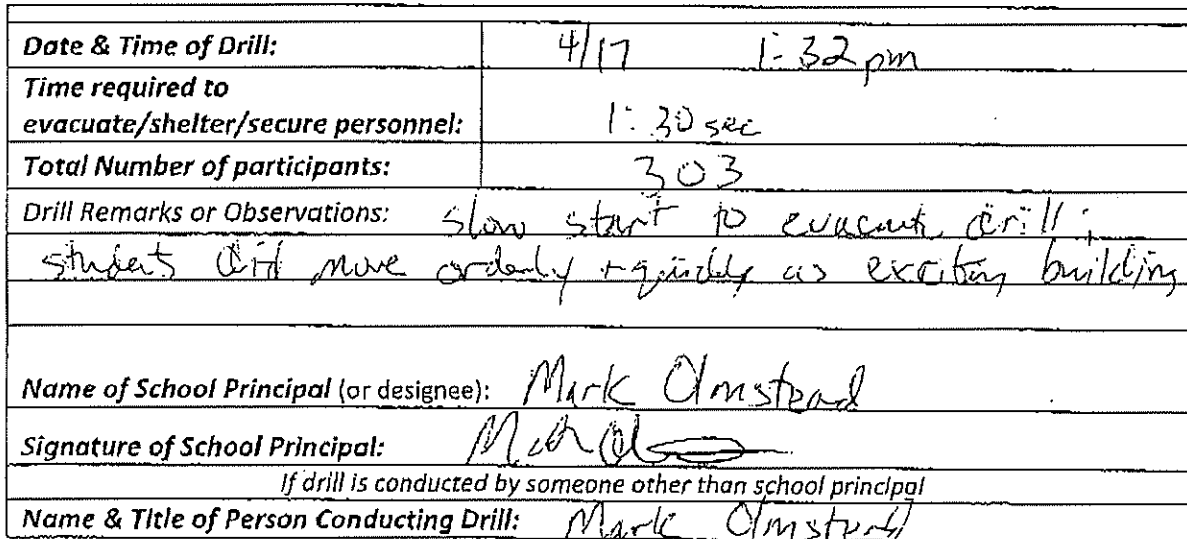 Date & Time of Drill: 4/17 1:32 pm
Time required to
evacuate/shelter/secure personnel: 1:30 sec
Total Number of participants: 303
Drill Remarks or Observations: slow start to evacuate drill;
students did move orderly + quickly as exciting building
Name of School Principal (or designee): Mark Olmstead
Signature of School Principal:
If drill is conducted by someone other than school principal
Name & Title of Person Conducting Drill: Mark Olmstead